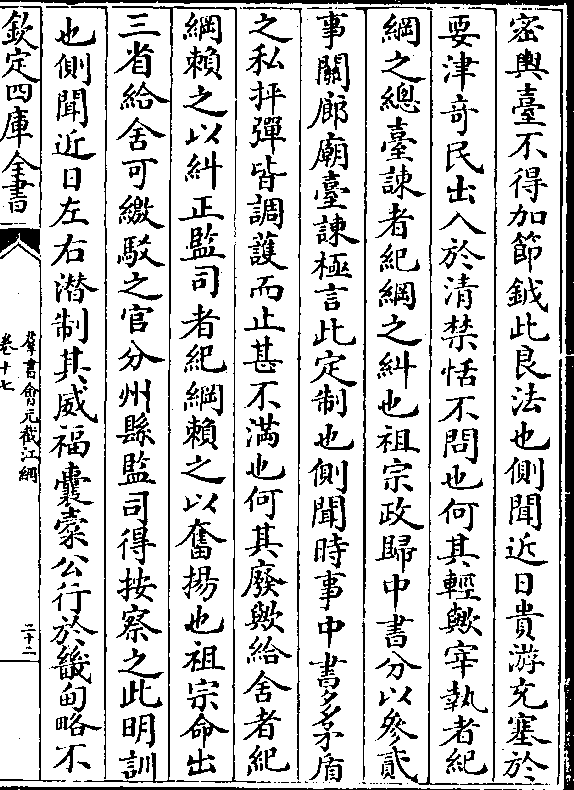 密輿臺不得加節鉞此良法也側聞近日貴游充塞於
要津竒民出入於清禁恬不問也何其輕歟宰執者紀
綱之總臺諫者紀綱之糾也祖宗政歸中書分以參貳
事關廊廟臺諫極言此定制也側聞時事中書多矛盾
之私抨彈皆調護而止甚不滿也何其廢歟給舍者紀
綱賴之以糾正監司者紀綱賴之以奮揚也祖宗命出
三省給舍可繳駁之官分州縣監司得按察之此明訓
也側聞近日左右潜制其威福囊橐公行於畿甸略不
欽定四庫全書
羣書會元截江網
卷十七
二十二